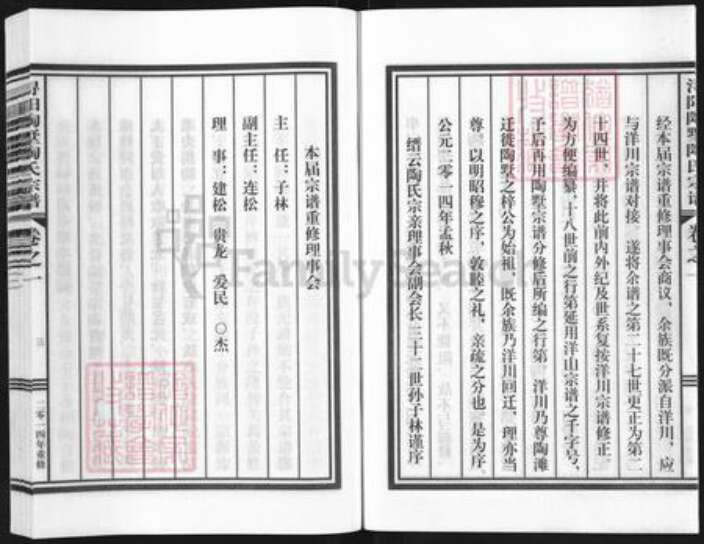 经本届宗谱重修理事会商议，余族既分派自洋川，应
与洋川谱对接，遂将余谱之第二十七世更正为第二
十四世，并将此前内外纪及世系复按洋川宗谱修正，
为方便编纂，十八世前之行第延用洋山宗谱之千字号，
予后再用陶墅宗谱分修后所编之行第，洋川乃尊陶滩
迁徙陶墅之梓公为始祖，既余族乃洋川回迁，理亦当
尊。以明昭穆之序，敦睦之礼，亲疏之分也，是为序。
公元二零一四年孟秋
缙云陶氏宗亲理事会副会长三十二世孙子林谨序
浔阳陶墅陶氏宗谱 卷之一
本届宗谱重修理事会
主 任：子林
副主任：连松
理 事：建松 贵龙 爱民 〇杰
浔阳陶墅陶氏宗谱 卷之一
二零一四年重修
FamilySearch